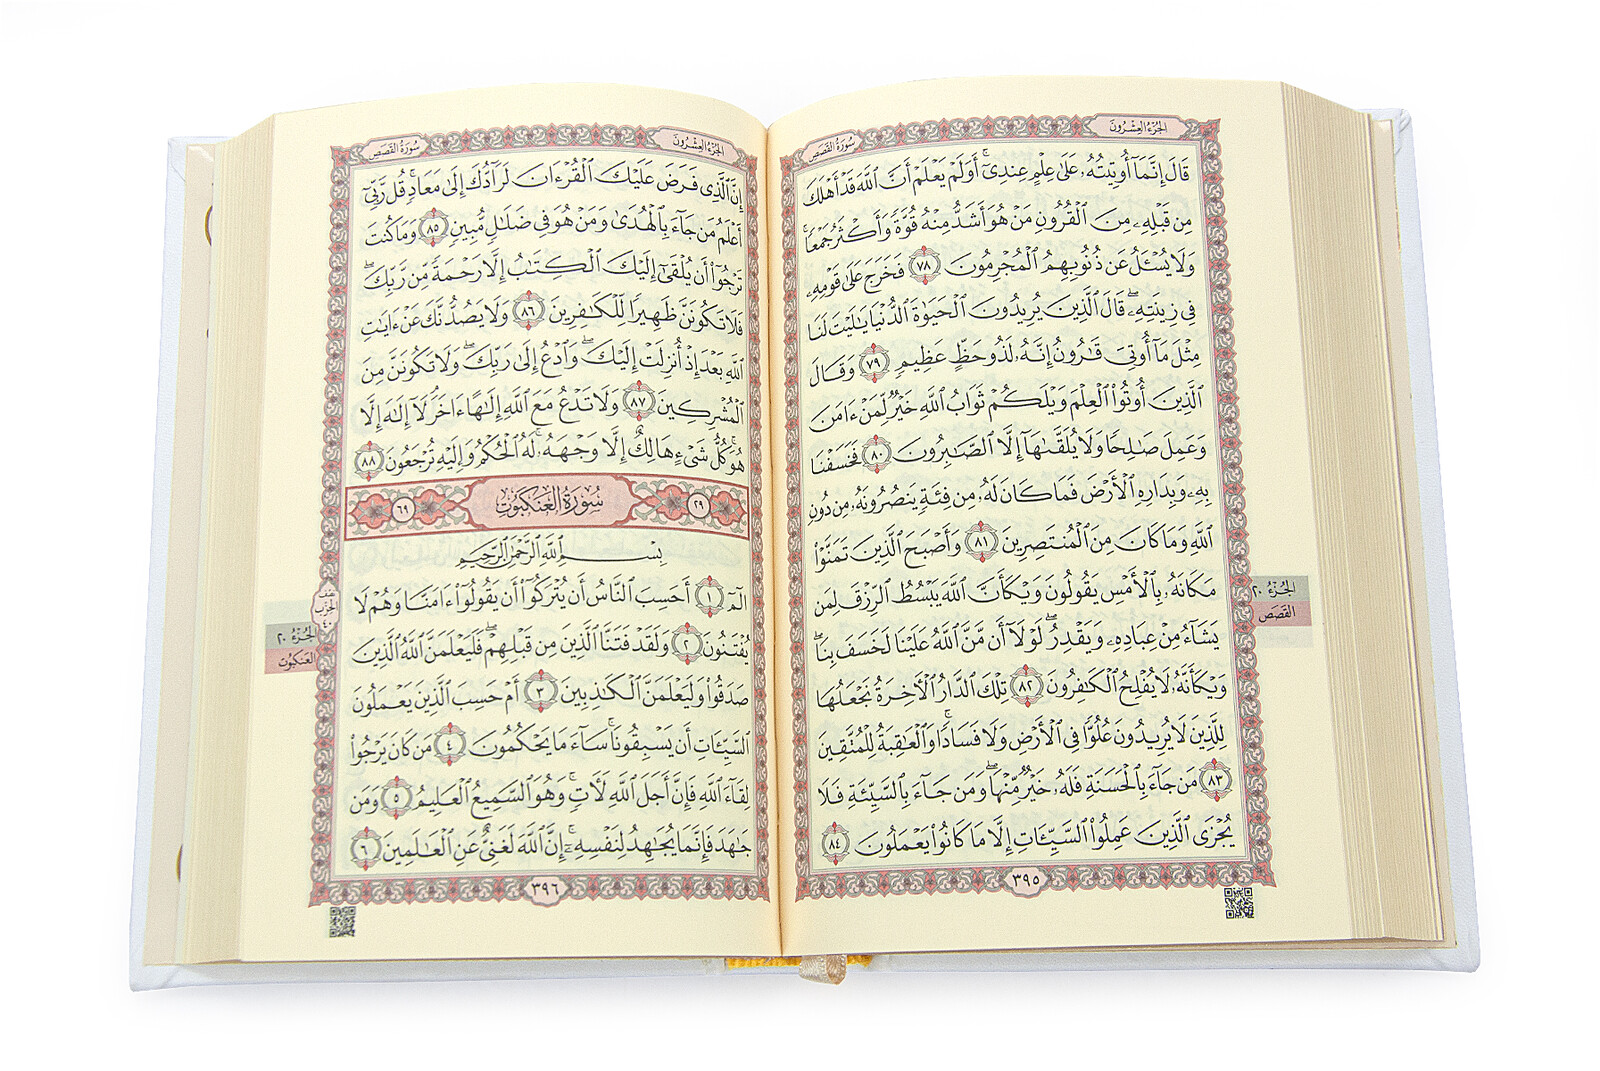 الجزء العشرون
سورة القصص
قَالَ إِنَّمَآ أُوتِيتُهُۥ عَلَىٰ عِلْمٍ عِندِىٓ ۚ أَوَلَمْ يَعْلَمْ أَنَّ ٱللَّهَ قَدْ أَهْلَكَ
مِن قَبْلِهِۦ مِنَ ٱلْقُرُونِ مَنْ هُوَ أَشَدُّ مِنْهُ قُوَّةً وَأَكْثَرُ جَمْعًا ۚ
وَلَا يُسْـَٔلُ عَن ذُنُوبِهِمُ ٱلْمُجْرِمُونَ ٧٨ فَخَرَجَ عَلَىٰ قَوْمِهِۦ
فِى زِينَتِهِۦ ۖ قَالَ ٱلَّذِينَ يُرِيدُونَ ٱلْحَيَوٰةَ ٱلدُّنْيَا يَـٰلَيْتَ لَنَا
مِثْلَ مَآ أُوتِىَ قَـٰرُونُ إِنَّهُۥ لَذُو حَظٍّ عَظِيمٍ ٧٩ وَقَالَ
ٱلَّذِينَ أُوتُوا۟ ٱلْعِلْمَ وَيْلَكُمْ ثَوَابُ ٱللَّهِ خَيْرٌ لِّمَنْ ءَامَنَ
وَعَمِلَ صَـٰلِحًا وَلَا يُلَقَّىٰهَآ إِلَّا ٱلصَّـٰبِرُونَ ٨٠ فَخَسَفْنَا
بِهِۦ وَبِدَارِهِ ٱلْأَرْضَ فَمَا كَانَ لَهُۥ مِن فِئَةٍ يَنصُرُونَهُۥ مِن دُونِ
ٱللَّهِ وَمَا كَانَ مِنَ ٱلْمُنتَصِرِينَ ٨١ وَأَصْبَحَ ٱلَّذِينَ تَمَنَّوْا۟
مَكَانَهُۥ بِٱلْأَمْسِ يَقُولُونَ وَيْكَأَنَّ ٱللَّهَ يَبْسُطُ ٱلرِّزْقَ لِمَن
يَشَآءُ مِنْ عِبَادِهِۦ وَيَقْدِرُ ۖ لَوْلَآ أَن مَّنَّ ٱللَّهُ عَلَيْنَا لَخَسَفَ بِنَا ۖ
وَيْكَأَنَّهُۥ لَا يُفْلِحُ ٱلْكَـٰفِرُونَ ٨٢ تِلْكَ ٱلدَّارُ ٱلْـَٔاخِرَةُ نَجْعَلُهَا
لِلَّذِينَ لَا يُرِيدُونَ عُلُوًّا فِى ٱلْأَرْضِ وَلَا فَسَادًا ۚ وَٱلْعَـٰقِبَةُ لِلْمُتَّقِينَ
٨٣ مَن جَآءَ بِٱلْحَسَنَةِ فَلَهُۥ خَيْرٌ مِّنْهَا ۖ وَمَن جَآءَ بِٱلسَّيِّئَةِ فَلَا
يُجْزَى ٱلَّذِينَ عَمِلُوا۟ ٱلسَّيِّـَٔاتِ إِلَّا مَا كَانُوا۟ يَعْمَلُونَ ٨٤
٣٩٥
الجزء ٢٠
القصص
الجزء العشرون
سورة القصص
إِنَّ ٱلَّذِى فَرَضَ عَلَيْكَ ٱلْقُرْءَانَ لَرَآدُّكَ إِلَىٰ مَعَادٍ ۚ قُل رَّبِّىٓ
أَعْلَمُ مَن جَآءَ بِٱلْهُدَىٰ وَمَنْ هُوَ فِى ضَلَـٰلٍ مُّبِينٍ ٨٥ وَمَا كُنتَ
تَرْجُوٓا۟ أَن يُلْقَىٰٓ إِلَيْكَ ٱلْكِتَـٰبُ إِلَّا رَحْمَةً مِّن رَّبِّكَ ۖ
فَلَا تَكُونَنَّ ظَهِيرًا لِّلْكَـٰفِرِينَ ٨٦ وَلَا يَصُدُّنَّكَ عَنْ ءَايَـٰتِ
ٱللَّهِ بَعْدَ إِذْ أُنزِلَتْ إِلَيْكَ ۖ وَٱدْعُ إِلَىٰ رَبِّكَ ۖ وَلَا تَكُونَنَّ مِنَ
ٱلْمُشْرِكِينَ ٨٧ وَلَا تَدْعُ مَعَ ٱللَّهِ إِلَـٰهًا ءَاخَرَ ۘ لَآ إِلَـٰهَ إِلَّا
هُوَ ۚ كُلُّ شَىْءٍ هَالِكٌ إِلَّا وَجْهَهُۥ ۚ لَهُ ٱلْحُكْمُ وَإِلَيْهِ تُرْجَعُونَ ٨٨
٢٩ سُورَةُ العَنكَبُوت ٦٩
بِسْمِ ٱللَّهِ ٱلرَّحْمَـٰنِ ٱلرَّحِيمِ
الٓمٓ ١ أَحَسِبَ ٱلنَّاسُ أَن يُتْرَكُوٓا۟ أَن يَقُولُوٓا۟ ءَامَنَّا وَهُمْ لَا
يُفْتَنُونَ ٢ وَلَقَدْ فَتَنَّا ٱلَّذِينَ مِن قَبْلِهِمْ ۖ فَلَيَعْلَمَنَّ ٱللَّهُ ٱلَّذِينَ
صَدَقُوا۟ وَلَيَعْلَمَنَّ ٱلْكَـٰذِبِينَ ٣ أَمْ حَسِبَ ٱلَّذِينَ يَعْمَلُونَ
ٱلسَّيِّـَٔاتِ أَن يَسْبِقُونَا ۚ سَآءَ مَا يَحْكُمُونَ ٤ مَن كَانَ يَرْجُوا۟
لِقَآءَ ٱللَّهِ فَإِنَّ أَجَلَ ٱللَّهِ لَـَٔاتٍ ۚ وَهُوَ ٱلسَّمِيعُ ٱلْعَلِيمُ ٥ وَمَن
جَـٰهَدَ فَإِنَّمَا يُجَـٰهِدُ لِنَفْسِهِۦٓ ۚ إِنَّ ٱللَّهَ لَغَنِىٌّ عَنِ ٱلْعَـٰلَمِينَ ٦
٣٩٦
نصف
الحزب
٤٠
الجزء ٢٠
العنكبوت